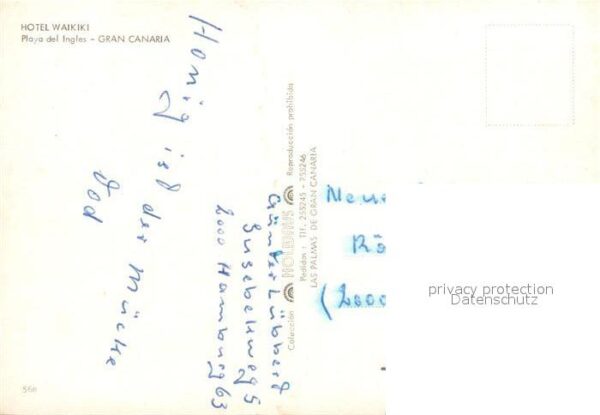 HOTEL WAIKIKI
Playa del Ingles - GRAN CANARIA
Honig ist der Mücke
Tod
Colección HOLIDAYS Reproducción prohibida
Pedidos: Tlf. 255245 - 255246
LAS PALMAS DE GRAN CANARIA
Günter Lübbert
2000 Hamburg 63
(2000
privacy protection
Datenschutz
566